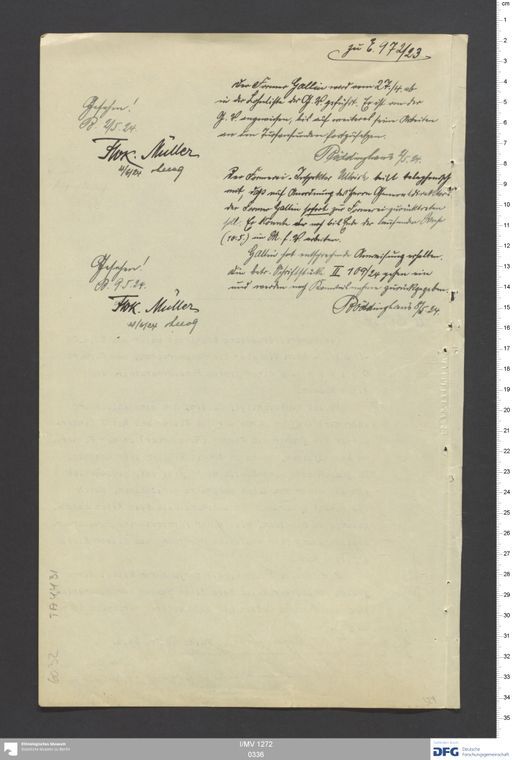 zu E. 972/23
Der Former Gallin wird vom 27./4. ab
in der Lohnliste der G. V. geführt. Er ist von der
G. V. angewiesen, bis auf weiteres seine Arbeiten
an den fortzusetzen.
Gesehen!
B. 2/5. 24.
Müller
Böddinghaus 2/5. 24.
Der Formerei-Inspektor Ulbrich teilt telephonisch
mit, daß auf Anordnung des Herrn Generaldirektors
der Former Gallin sofort zur Formerei zurücktreten
soll. Er könnte nur noch bis Ende der laufenden Woche
(10.5.) im M. f. V. arbeiten.
Gallin hat entsprechende Anweisung erhalten.
Die betr. Schriftstücke II 109/24 gehen ein
und werden nach Kenntnisnahme zurückgegeben.
Gesehen!
B. 9.5.24.
Müller
Böddinghaus 8/5. 24
TA 4431
I/MV 1272
0336
Ethnologisches Museum
Staatliche Museen zu Berlin
DFG Deutsche
Forschungsgemeinschaft